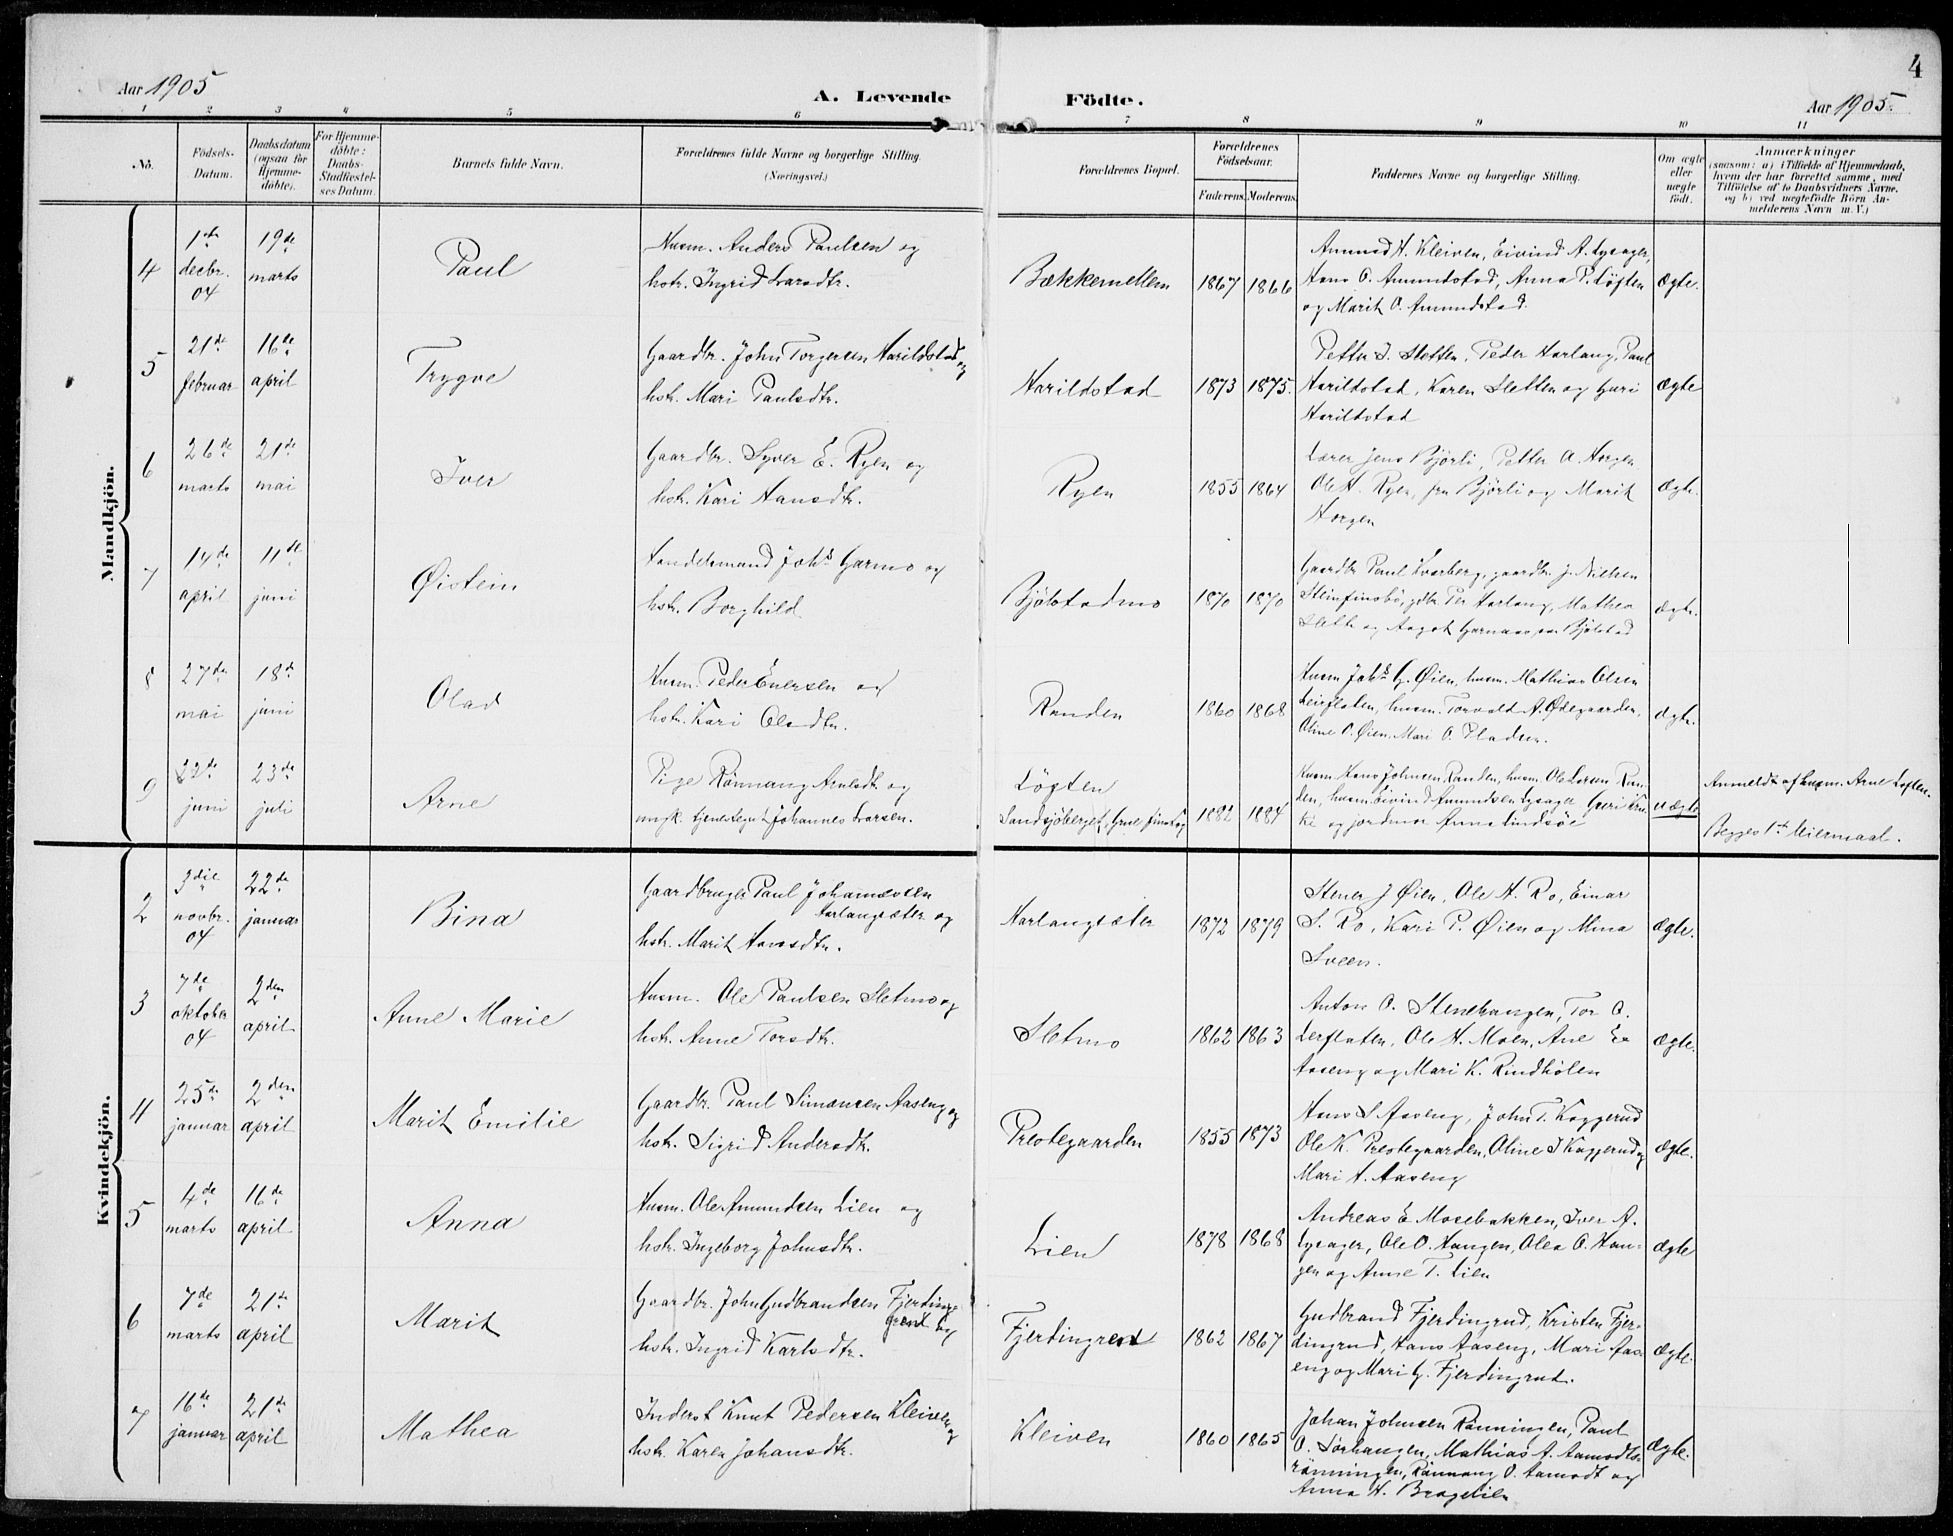 4
Aar 1905
A. Levende
Födte.
Aar 1905
1 2 3 4 5 6 7 8 9 10 11
No.
Födsels-
Datum.
Daabsdatum
(ogsaa for
Hjemme-
döbte).
For Hjemme-
döbte:
Daabs-
Stadfæstel-
ses Datum.
Barnets fulde Navn.
Forældrenes fulde Navne og borgerlige Stilling.
(Næringsvei.)
Forældrenes Bopæl.
Forældrenes
Födselsaar.
Faderens. Moderens.
Faddernes Navne og borgerlige Stilling.
Om ægte
eller
uægte
födt.
Anmærkninger
(saasom: a) i Tilfælde af Hjemmedaab,
hvem der har forrettet samme, med
Tilföielse af to Daabsvidners Navne.
og b) ved uægtefödte Börn An-
melderens Navn m. V.)
Mandkjön.
4
1ste
decbr.
04
19de
marts
Paul
Husm. Anders Paulsen og
hstr. Ingrid Larsdtr.
Bækkemellem
1867 1866
Amund H. Kleiven, Eivind A. Lysager,
Hans O. Amundstad, Anna P. Løften
og Marit O. Amundstad.
Ægte.
5
21de
februar
16de
april
Trygve
Gaardbr. John Torgersen Harildstad og
hstr. Mari Paulsdtr.
Harildstad
1873 1875.
Petter J. Sletten, Peder Harlang, Paul
Harildstad, Karen Sletten og Guri
Harildstad
Ægte
6
26de
marts
21de
mai
Iver
Gaardbr. Syver E. Ryen og
hstr. Kari Hansdtr.
Ryen
1855 1864
Lærer Jens Bjørli, Petter A. Horgen
Ole H. Ryen, fru Bjørli og Marit
Horgen
Ægte.
7
14de
april
11te
juni
Øistein
Handelsmand Johs Garmo og
hstr. Borghild
Bjølstadmo
1870 1870
Gaardbr Paul Kvarberg, gaardbr. J. Nielsen
Steinfinsbø, gdbr. Per Harlang, Mathea
Sletten og Aagot Bjølstad
Ægte.
8
27de
mai
18de
juni
Olav
Husm. Peder Enersen og
hstr. Kari Olsdtr.
Randen
1860 1868
Husm Johs G. Øien, husm. Mathias Olsen
Leirflaten, husm. Torvald A. Ødegaarden,
Oline P. Øien, Mari O. Pladsen.
Ægte.
9
22de
juni
23de
juli
Arne
Pige Rönnaug Arnesdtr og
ungk. tjenestegut Johannes Larsen.
Løften
Sandsjöberget, Grue finskog
1882 1884
Husm Hans Johnsen Randen, husm. Ole Larsen Ran-
den, husm. Eivind Amundsen Lysager, Guri
og jordmor Anna Lindsöe
Uægte
Anmeldt af husm. Arne Løften.
Begges 1ste Leiermaal.
Kvindekjön.
2
3die
novbr.
04
22de
januar
Bina
Gaardbruger Paul Johannesen
Harlangsæter og
hstr. Marit Hansdtr.
Harlangsæter
1872 1879
Stener J Øien, Ole H. Ro, Einar
S. Ro, Kari P. Øien og Mina
Sveen.
Ægte.
3
7de
oktober
04
2den
april
Anne Marie
Husm. Ole Paulsen Sletmo og
hstr. Anne Torsdtr.
Sletmo
1862 1863
Anton O. Stenehaugen, Tor O.
Lerflaten, Ole H. Moen, Ane E
Aaseng og Mari K. Rindhölen
Ægte.
4
25de
januar
2den
april
Marit Emilie
Gaardbr. Paul Simonsen Aaseng og
hstr. Sigrid Andersdtr.
Prestegaarden
1855 1873
Hans S Aaseng, John T. Kaggerud
Ole K. Prestegaarden, Oline J Kaggerud og
Mari H. Aaseng
Ægte.
5
4de
marts
16de
april
Anna
Husm. Ole Amundsen Lien og
hstr. Ingeborg Johnsdtr.
Lien
1878 1868
Andreas E Mosebakken, Iver A.
Lysager, Ole O. Haugen, Olea O. Hau-
gen og Anne T. Lien
Ægte
6
7de
marts
21de
april
Marit
Gaardbr. John Gudbrandsen Fjerding-
grend og
hstr. Ingrid Karlsdtr.
Fjerdingrend
1862 1867
Gudbrand Fjerdingrud, Kristen Fjer-
dingrud, Hans Aaseng, Mari Aas-
eng og Mari G. Fjerdingrud.
Ægte.
7
16de
januar
21de
april
Mathea
Inderst Knut Pedersen Kleiven og
hstr. Karen Johansdtr.
Kleiven
1860 1865
Johan Johnsen Rønningen, Paul
O. Sørhaugen, Mathias A. Aamodts-
rønningen, Rønnaug O. Aamodt og
Anna H. Bragelien
Ægte.